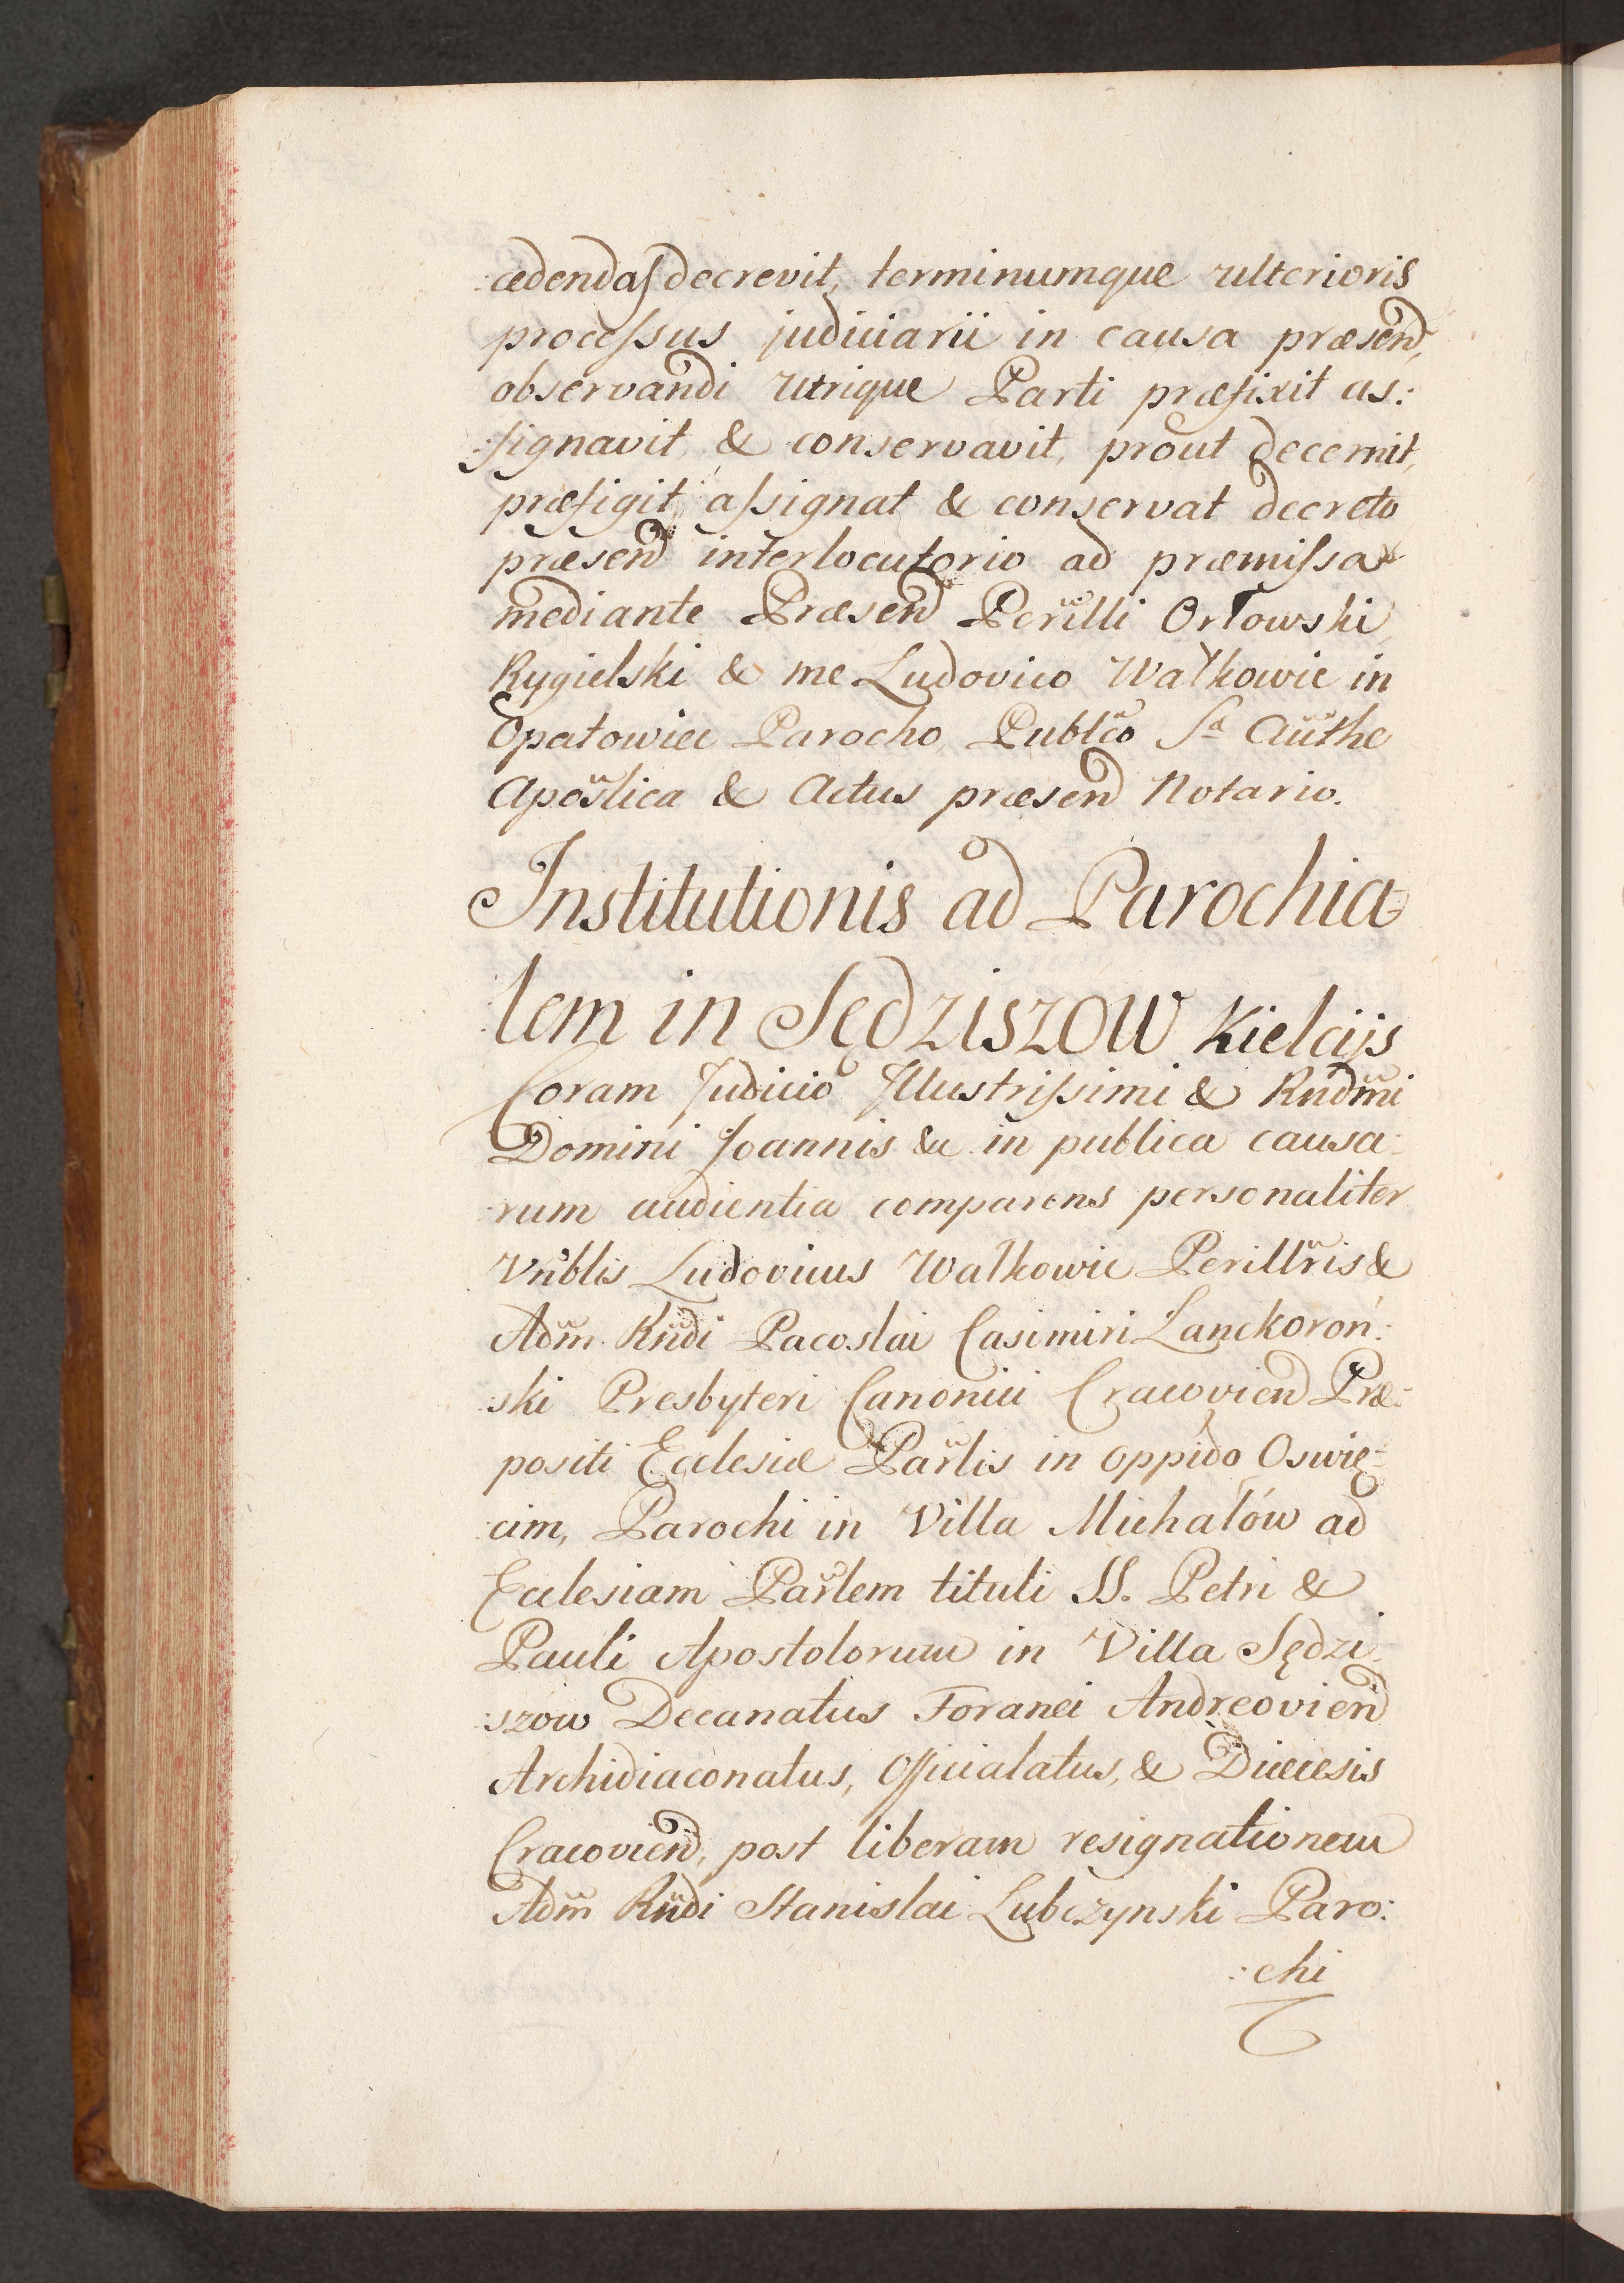 :cedendas decrevit, terminumque ulterioris
processus judiciarii in causa præsend,
observandi utrique Parti præfixit as:
:signavit, & conservavit, prout decernit,
præfigit, assignat & conservat decreto
præsend interlocutorio ad præmissa
mediante Præsend Perilli Orłowski
Rygielski & me Ludovico Wałkowic in
Opatowiec Parocho, Publco Sa Authe
Apostlica & Actus præsend Notario.
Institutionis ad Parochia
:lem in Sędziszow Kielcijs
Coram Judicio Illustrissimi & Rndmi
Domini Joannis &c in publica causa:
:rum audientia comparens personaliter
Vnblis Ludovicus Wałkowic Perillris &
Adm Rndi Pacoslai Casimiri Lanckoroń:
:ski Presbyteri Canonici Cracoviend Præ:
positi Ecclesiæ Parlis in oppido Oswię:
:cim, Parochi in Villa Michałów ad
Ecclesiam Parlem tituli SS. Petri &
Pauli Apostolorum in Villa Sędzi:
:szow Decanatus Foranei Andreoviend
Archidiaconatus, Officialatus, & Diœcesis
Cracoviend, post liberam resignationem
Adm Rndi Stanislai Lubczynski Paro:
:chi